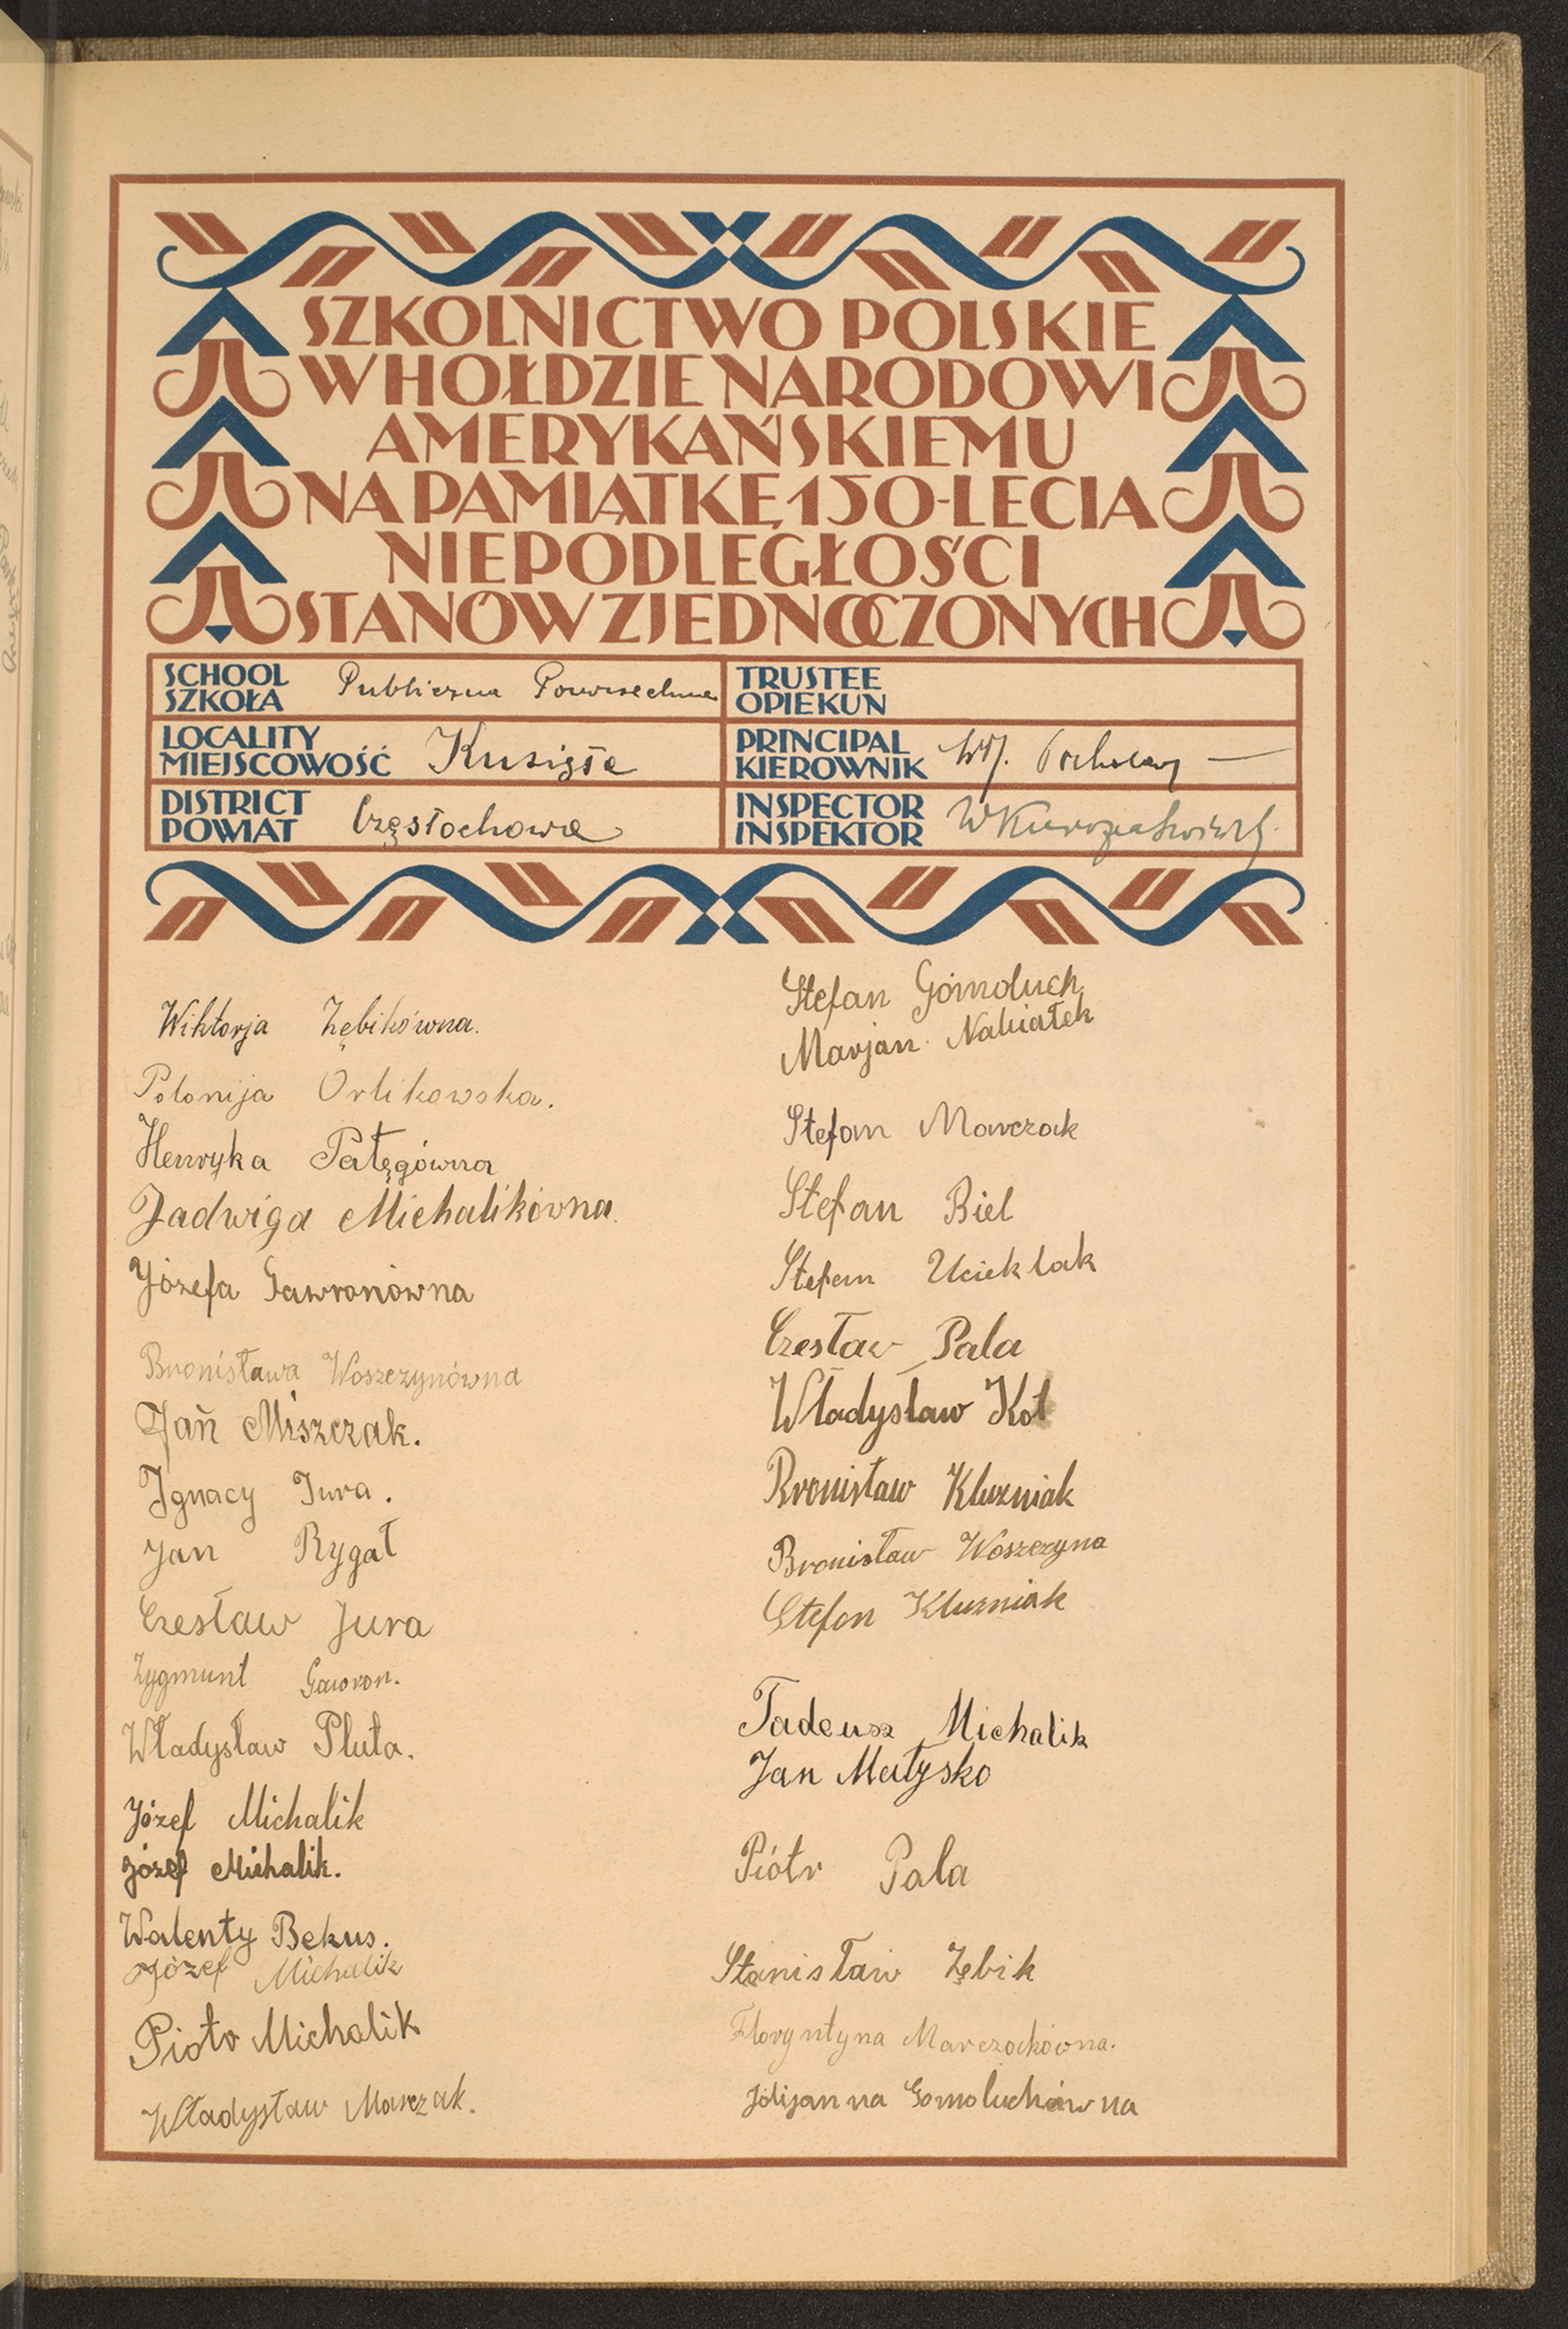 SZKOLNICTWO POLSKIE
W HOŁDZIE NARODOWI
AMERYKAŃSKIEMU
NA PAMIĄTKĘ 150-LECIA
NIEPODLEGŁOŚCI
STANÓW ZJEDNOCZONYCH
SCHOOL
SZKOŁA Publiczna Powszechna
TRUSTEE
OPIEKUN
LOCALITY
MIEJSCOWOŚĆ Kusięta
PRINCIPAL
KIEROWNIK Wł.
DISTRICT
POWIAT Częstochowa
INSPECTOR
INSPEKTOR
Wiktorja Zębikówna.
Polonija Orlikowska.
Henryka Patęgówna
Jadwiga Michalikówna.
Józefa Gawronówna
Bronisława Woszczynówna
Jań Miszczak.
Ignacy Jura.
Jan Rygał
Czesław Jura
Zygmunt Gawron.
Władysław Pluta.
Józef Michalik
Józef Michalik.
Walenty Bekus.
Józef Michalik
Piotr Michalik
Władysław Marczak.
Stefan Gómoluch
Marjan Nabiałek
Stefan Marczak
Stefan Biel
Stefan Ucieklak
Czesław Pala
Władysław Kot
Bronisław Kluzniak
Bronisław Woszczyna
Stefan Kluzniak
Tadeusz Michalik
Jan Małysko
Piótr Pala
Stanisław Zębik
Florgntyna Marczochówna.
Jólijanna Gomoluchówna